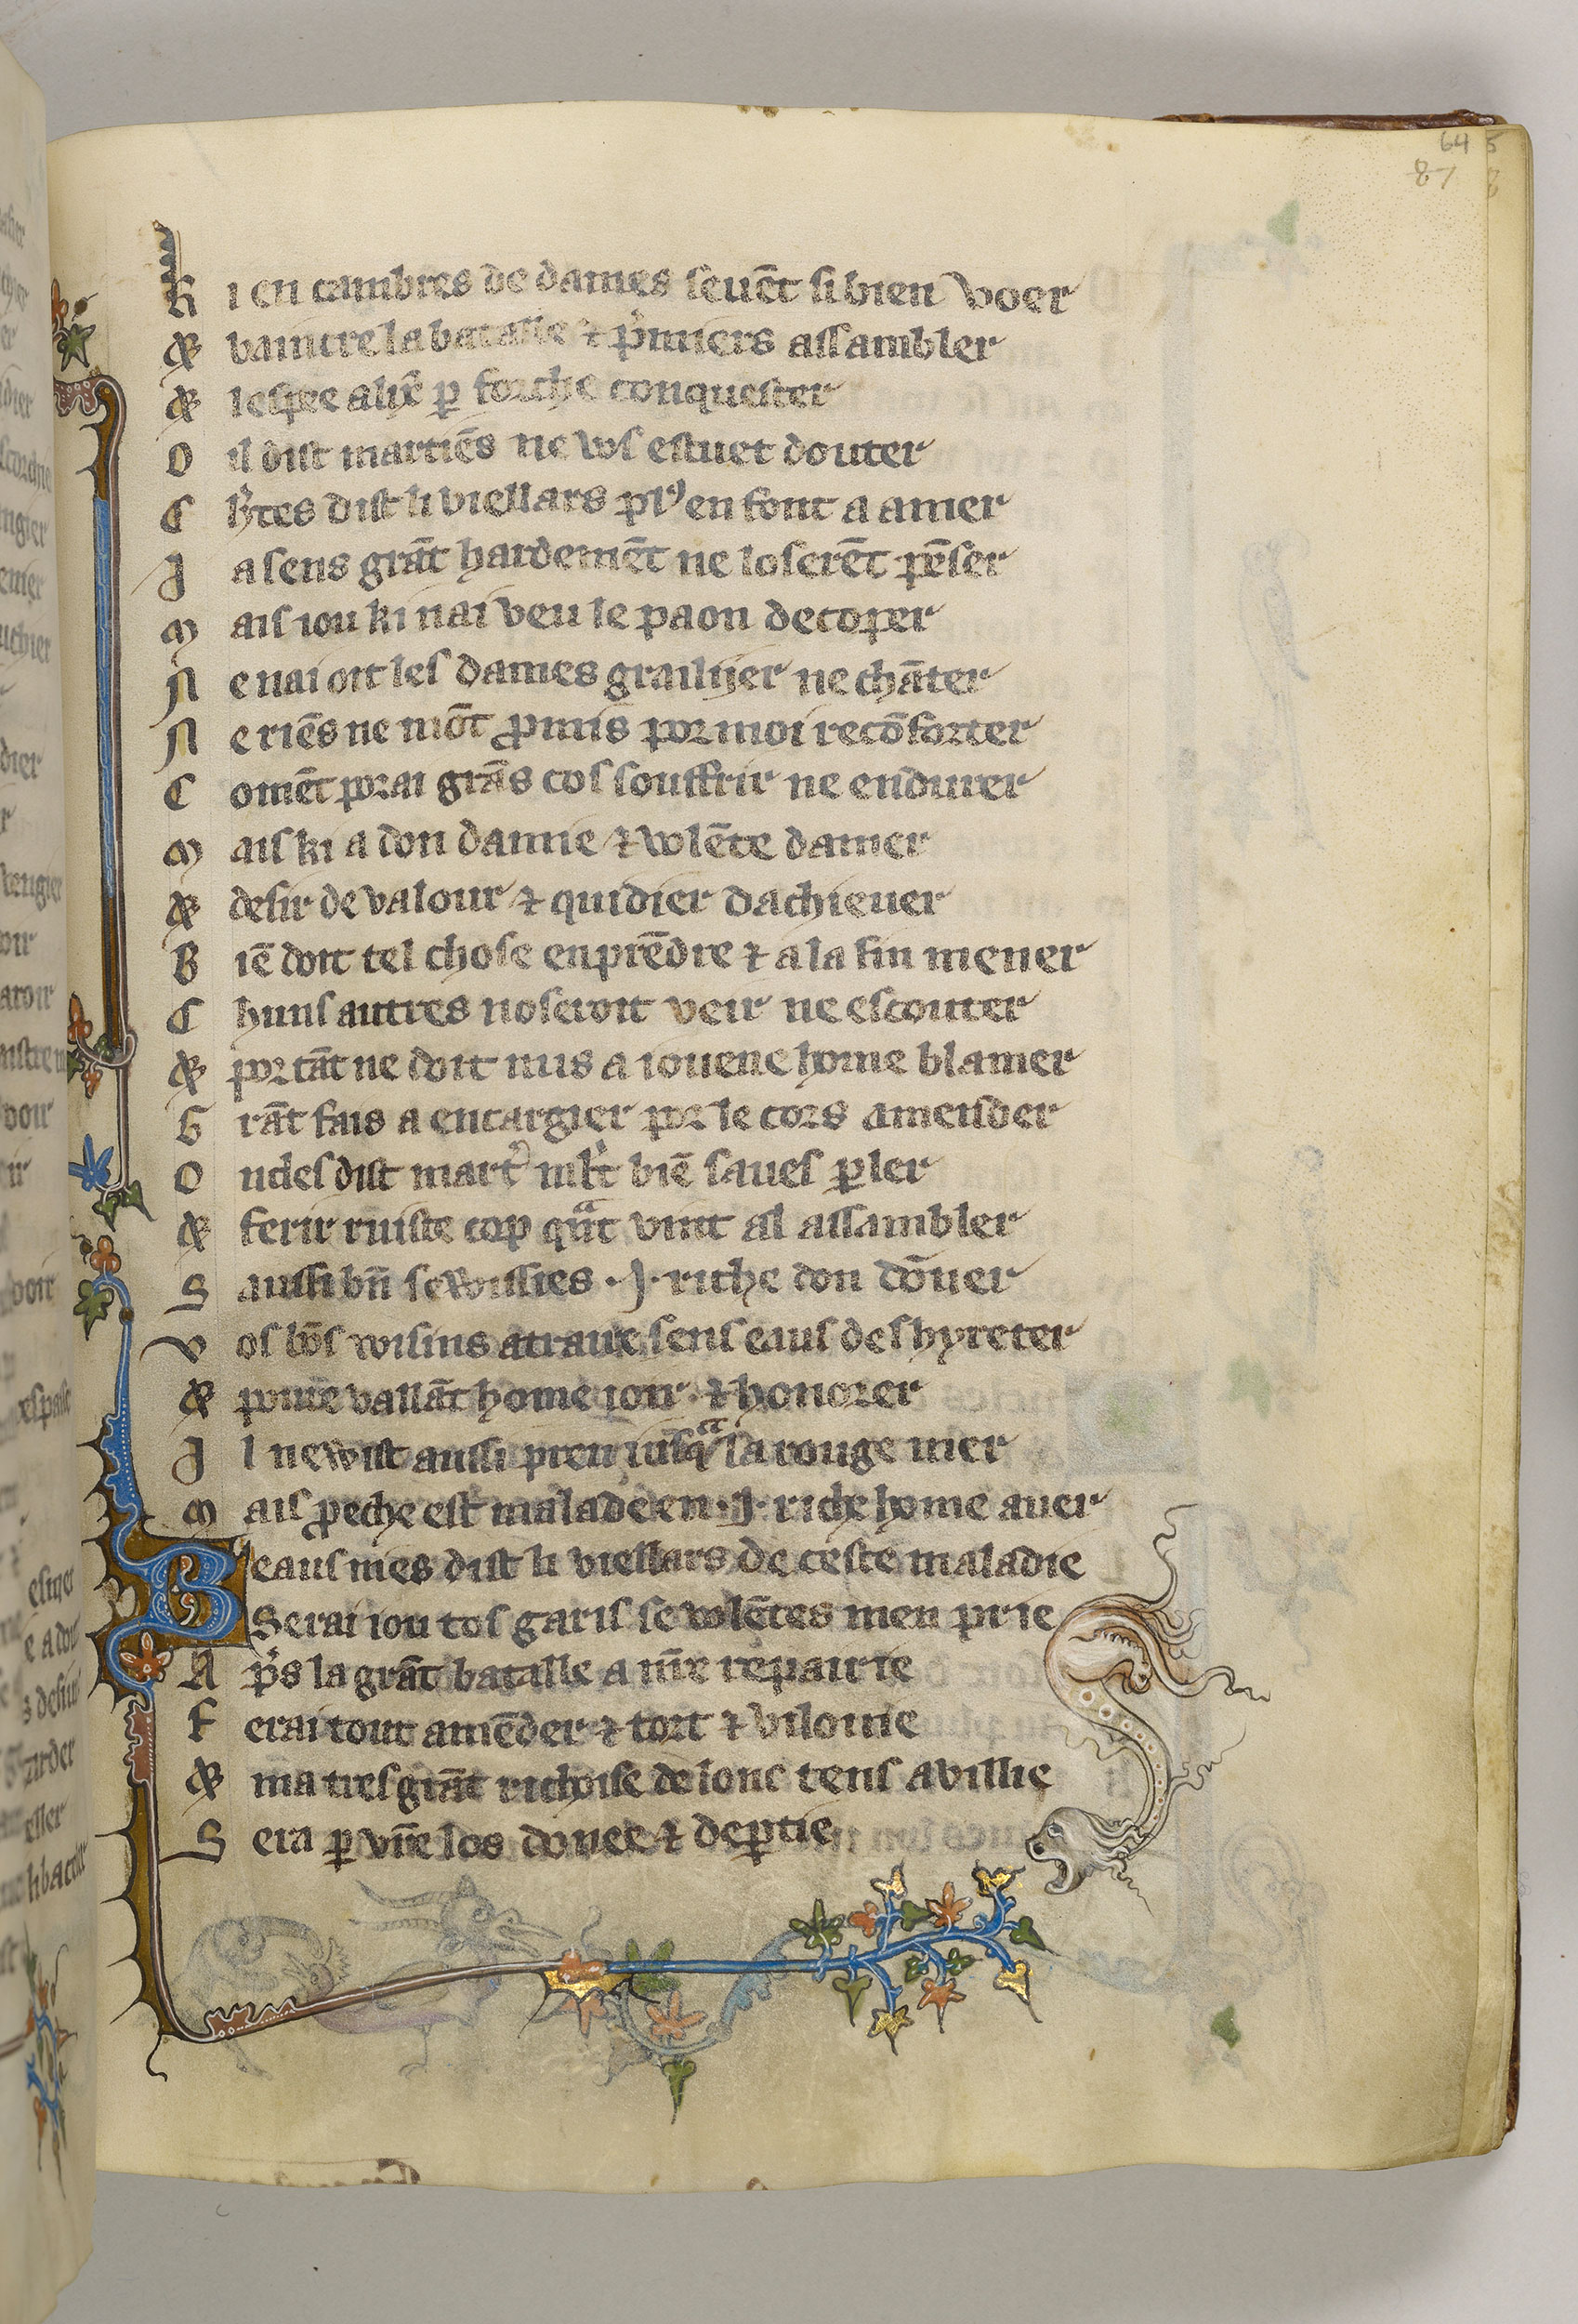 64 5
87 8
K i en cambres de dames seuēt si bien voer
⁊ vaintre la batalle ⁊ p̾miers assambler
⁊ lespee alix̄ ꝑ forche conquester
O il dist martiēs ne vos estuet douter
C h̾tes dist li viellars plꝰ en font a amer
J a sens grāt hardemēt ne loserēt pēser
M ais iou ki nai veu le paon decoper
N e nai oit les dames grailijer ne chāter
N e riēs ne mōt ꝓmis por moi recōforter
C omēt porai grās cos souffrir ne endurer
M ais ki a don damie ⁊ volēte damer
⁊ desir de valour ⁊ quidier dachieuer
B iē doit tel chose enprēdre ⁊ a la fin mener
C huns autres noseroit veir ne escouter
⁊ por tāt ne doit nus a iouene home blamer
G rāt fais a encargier por le cors amender
O ncles dist mart̾ ml̾t biē saues ꝑler
⁊ ferir ruiste cop qᵃt vint al assambler
S aussi bn̄ se voussies ·J· riche don dōner
V os bōs voisins atraire sens eaus deshyreter
⁊ poure vallāt home ioir ⁊ honorer
J l newist aussi preu iusqᵃ la rouge mer
M ais peche est malade en ·J· riche home auer
Beaus nies dist li viellars de ceste maladie
Serai iou tos garis se volētes men prie
A p̾s la grāt batalle a nr̄e repairie
F erai tout amēder ⁊ tort ⁊ vilonie
⁊ ma tres grāt richoise de lonc tens avillie
S era ꝑ vr̄e los donee ⁊ deꝑtie